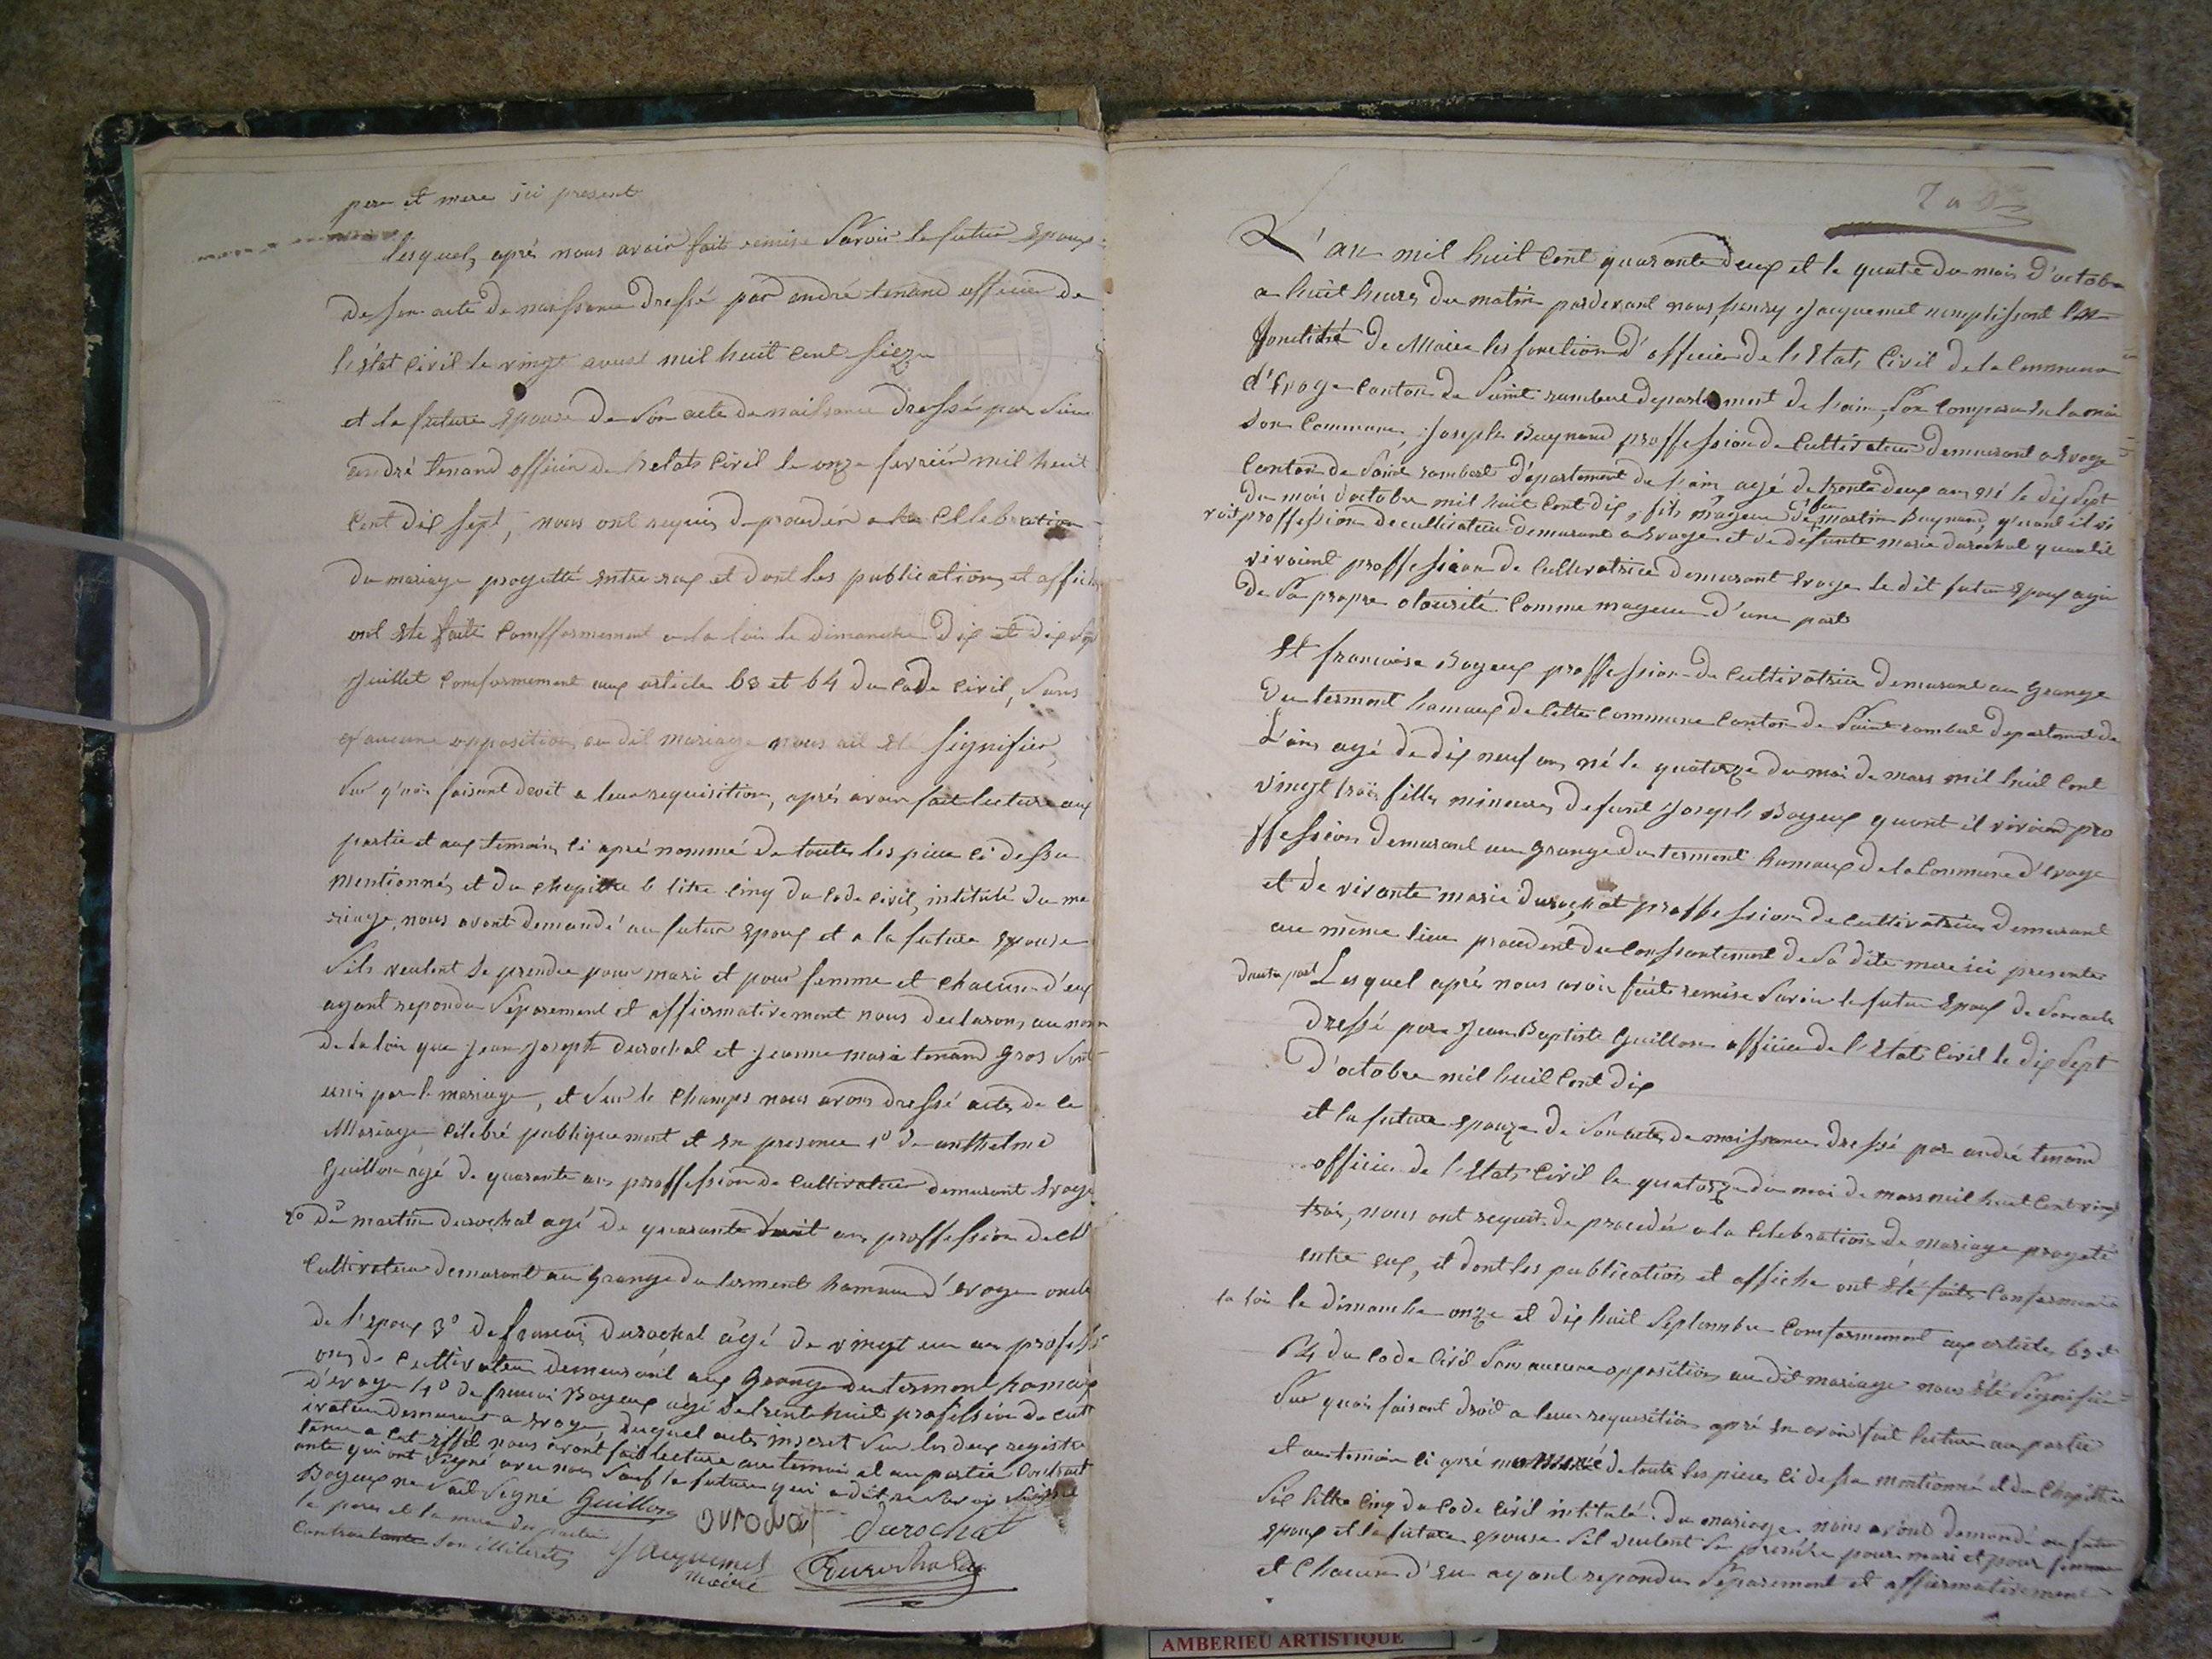 pere et mere ici present
lesquels, après nous avoir fait remise Savoir le futur Epoux
de son acte de naissance dressé par andré tenand officier de
l'état Civil le vingt avril mil huit Cent Sieze
et la future Epouse de Son acte de naissance dressés par Sieur
andré tenand officier de l'etats Civil le onze fevrièr mil huit
Cent dix Sept, nous ont requis de proceder a la Célébration
du mariage progetté entre eux et dont les publications et affiches
ont été faite Comfformement a la loi le dimanche dix et dix Sept
Juillet Comformement aux article 63 et 64 du Code Civil, Sans
q'aucune opposition au dit mariage nous ait été Signifier,
Sur q'uoi faisant droit a leur requisition, après avoir fait lecture aux
partie et aux temoins Ci après nommé de toutes les piece Ci dessu
Mentionnés et du chapitre 6 litre Cinq du Code Civil, intitulé du ma
riage, nous avont demandé au futur Epoux et a la future Epouse
S'ils veulent Se prendre pour mari et pour femme et chacun d'eux
ayant repondu Séparement et affirmativement nous declarons au nom
de la loi que Jean Joseph Durochat et Jeanne marie tenand gros Sont
unis par le mariage, et Sur le Champs nous avons dressé actes de ce
Mariage Célebré publiquement et en presence 1º de anthelme
Guillon agé de quarante ans proffession de Cultivateur demeurant Evoge
2º de martin durochat agé de quarante huit ans proffession de
Cultivateur demeurant au Grange du terment hameau d'Evoge oncle
de l'epoux 3º de francois Durochat âgé de vingt un an profess
on de Cultivateur demeurant aux Grange du terment hamaux
d'évoge 4º de francois Boyeux agé de trente huit profession de cult
ivateur demeurant a Evoge, duquel actes inscret Sur les deux registre
tenu a Cet effet nous avont fait lecture au temoin et au partie Contract
ante qui ont Signé avec nous Sauf la future qui a dit ne Savoir
Boyeux ne Sait Signé Guillon Durochat Durochat
le pere et la mere du partie
Contractante Son illiterés Jacquemet
Maire Durochat
L'an mil huit Cent quarante deux et le quatre du mois d'octobre
a huit heures du matin pardevant nous, henry Jacquemet remplissant les
fonctions de Maire les fonction d'officier de l'Etats Civil de la Commune
d'Evoge Canton de Saint rambert departement de l'ain, Son Comparu en la mai
Son Commune, Joseph Buynand proffession de Cultivateur demeurant a Evoge
Canton de Saint rambert département de l'ain agé de trente deux ans né le dix Sept
du mois d'octobre mil huit Cent dix, fils mageur de feu martin Buynand, q'uant il vi
voit proffession de cultivateur demeurant a Evoge et de défunte marie durochat quant il
vivoient proffession de Cultivatrice demeurant Evoge le dit futur Epoux agir
de Sa propre otourité Comme mageur d'une part
Et francoise Boyeux proffession de Cultivatrice demeurant au Grange
du terment hamaux de Cette Commune Canton de Saint rambert departement de
L'ain agé de dix neuf ans né le quatorze du moi de mars mil huit Cent
vingt trois filles mineure, defunt Joseph Boyeux quant il vivoient pro
ffession demeurant au Grange du terment hamaux de la Commune d'Evoge
et de vivante marie durochat proffession de Cultivatrice demeurant
au même lieu procedent du Conssantement de Sa dite mere ici presente
dautre part Lesquel après nous avoir faite remise Savoir le futur Epoux de Son acte
dressé par Jean Baptiste Guillon officier de l'Etats Civil le dix Sept
D'octobre mil huit Cent dix
et la future Epouze de Son acte de naissance dressé par andré tenand
officier de l'Etats Civil le quatorze du moi de mars mil huit Cent vingt
trois, nous ont requit de proceder a la Celebration de mariage progeté
entre eux, et dont les publication et affiche ont été faite Conformement a
la loi le dimanche onze et dix huit Septembre Comformement aux articles 63 et
64 du Code Civil Sans aucune opposition au dit mariage nous été Signifier
Sur quoi faisant droit a leur requisition apré en avoir fait lecture au partie
et au temoin Ci apré nommé de toute les pieces Ci dessu mentionné et du Chapitre
Six litre Cinq du Code Civil intitulé du mariage nous avons demandé au futur
Epoux et la future Epouse S'il veulent Se prendre pour mari et pour femme
et Chacun d'eu ayant repondu Séparement et affirmativement
AMBERIEU ARTISTIQUE